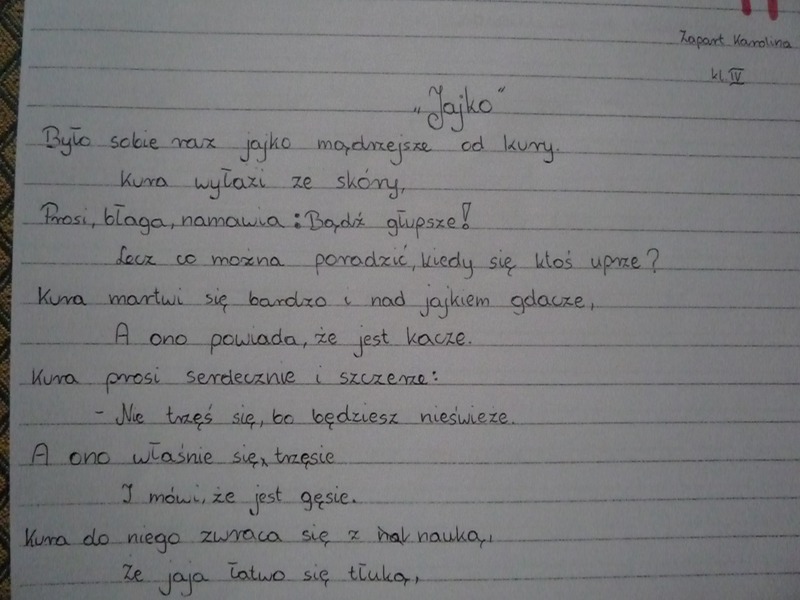 Zapart Karolina
kl. IV
„Jajko”
Było sobie raz jajko mądrzejsze od kury.
Kura wyłazi ze skóry,
Prosi, błaga, namawia: Bądź głupsze!
Lecz co można poradzić, kiedy się ktoś uprze?
Kura martwi się bardzo i nad jajkiem gdacze,
A ono powiada, że jest kacze.
Kura prosi serdecznie i szczerze:
- Nie trzęś się, bo będziesz nieświeże.
A ono właśnie się trzęsie
I mówi, że jest gęsie.
Kura do niego zwraca się z nauką,
Że jaja łatwo się tłuką,